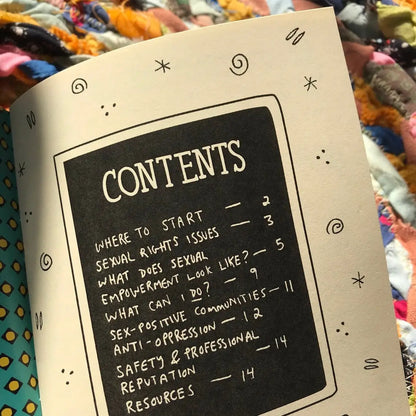 CONTENTS
WHERE TO START — 2
SEXUAL RIGHTS ISSUES — 3
WHAT DOES SEXUAL
EMPOWERMENT LOOK LIKE? — 5
WHAT CAN I DO? — 9
SEX-POSITIVE COMMUNITIES — 11
ANTI-OPPRESSION — 12
SAFETY & PROFESSIONAL
REPUTATION — 14
RESOURCES — 14